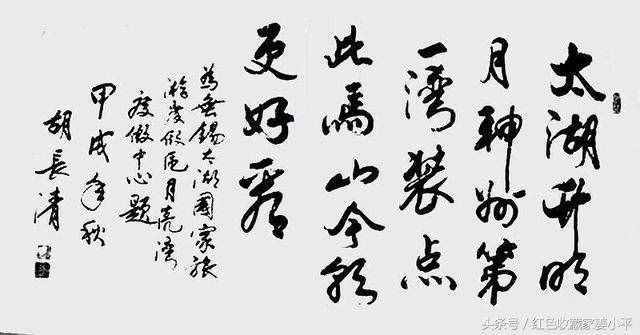 太湖升明
月神州第
一湾装点
此馬山今朝
更好看
為無錫太湖國家旅
游度假區月亮湾
度假中心題
甲戌年秋
胡長清
头条号/红色收藏家姜小平